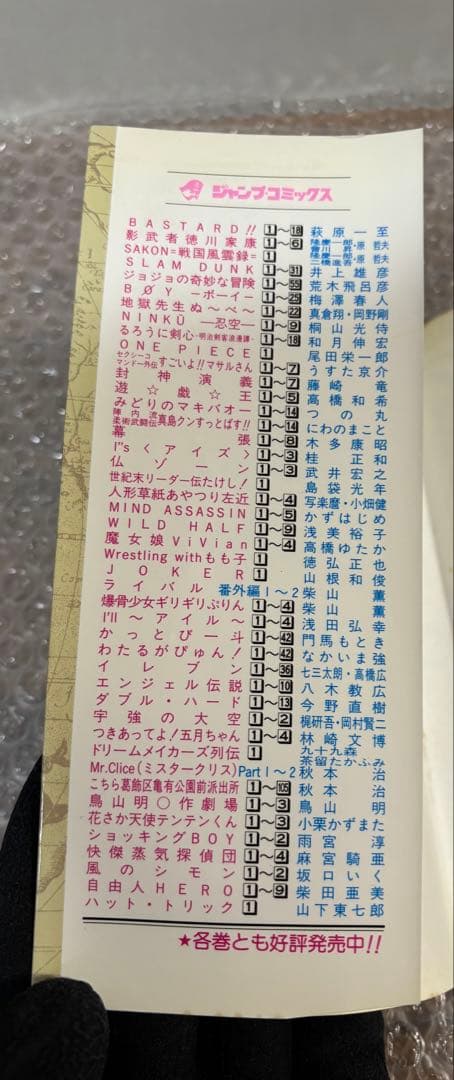 ジャンプ・コミックス
BASTARD!! 1〜18 萩原一至
影武者徳川家康 1〜6 隆慶一郎・原 哲夫 會川 昇
SAKON=戦国風雲録= 1 隆慶一郎・原 哲夫 二橋進吾
SLAM DUNK 1〜31 井上雄彦
ジョジョの奇妙な冒険 1〜55 荒木飛呂彦
BØY—ボーイ— 1〜25 梅澤春人
地獄先生ぬ〜べ〜 1〜22 真倉翔・岡野剛
NINKU—忍空— 1〜9 桐山光侍
るろうに剣心-明治剣客浪漫譚- 1〜18 和月伸宏
ONE PIECE 1 尾田栄一郎
セクシーコマンドー外伝 すごいよ!!マサルさん 1〜7 うすた京介
封神演義 1〜7 藤崎竜
遊☆戯☆王 1〜5 高橋和希
みどりのマキバオー 1〜14 つの丸
陣内流柔術武闘伝 真島クンすっとばす!! 1〜14 にわのまこと
幕張 1〜8 木多康昭
I"s〈アイズ〉 1〜3 桂正和
仏ゾーン 1〜3 武井宏之
世紀末リーダー伝たけし! 1 島袋光年
人形草紙あやつり左近 1〜4 写楽麿・小畑健
MIND ASSASSIN 1〜5 かずはじめ
WILD HALF 1〜9 浅美裕子
魔女娘ViVian 1〜4 高橋ゆたか
Wrestling withもも子 1 徳弘正也
JOKER 1 山根和俊
ライバル 番外編1〜2 柴山薫
爆骨少女ギリギリぷりん 1〜4 柴山薫
I'll〜アイル〜 1〜4 浅田弘幸
かっとび一斗 1〜42 門馬もとき
わたるがぴゅん! 1〜42 なかいま強
イレブン 1〜36 七三太朗・高橋広
エンジェル伝説 1〜10 八木教広
ダブル・ハード 1〜13 今野直樹
宇強の大空 1〜2 梶研吾・岡村賢二
つきあってよ!五月ちゃん 1〜4 林崎文博
ドリームメイカーズ列伝 1 九十九森 茶留たかふみ
Mr.Clice(ミスタークリス) Part1〜2 秋本治
こちら葛飾区亀有公園前派出所 1〜105 秋本治
鳥山明○作劇場 1〜3 鳥山明
花さか天使テンテンくん 1〜3 小栗かずまた
ショッキングBOY 1〜2 雨宮淳
快傑蒸気探偵団 1〜4 麻宮騎亜
風のシモン 1〜2 坂口いく
自由人HERO 1〜9 柴田亜美
ハット・トリック 1 山下東七郎
★各巻とも好評発売中!!